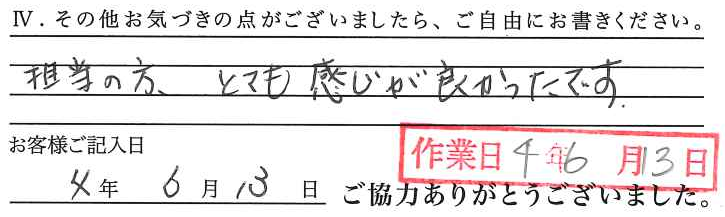 Ⅳ．その他お気づきの点がございましたら、ご自由にお書きください。
担当の方、とても感じが良かったです.
お客様ご記入日
作業日 4年6月13日
4年 6月13日 ご協力ありがとうございました。